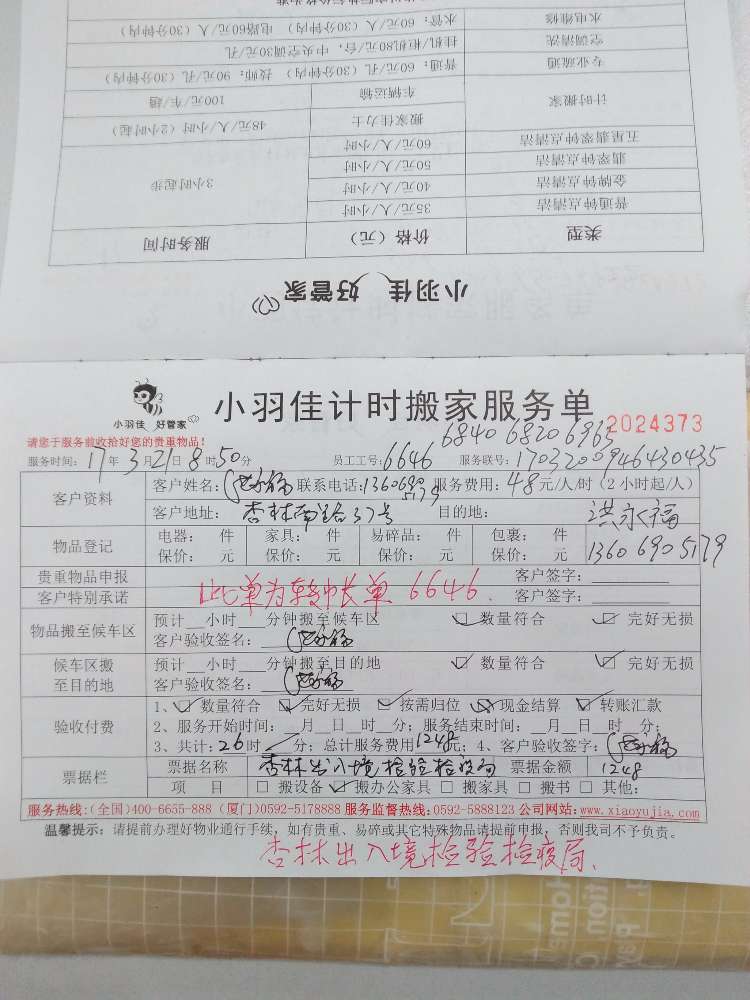 小羽佳 好管家
类型 价格（元） 服务时间
普通钟点清洁 35元/人/小时 3小时起步
金牌钟点清洁 40元/人/小时
翡翠钟点清洁 50元/人/小时
五星翡翠钟点清洁 60元/人/小时
计时搬家 搬家佳力士 48元/人/小时（2小时起）
车辆运输 100元/车/趟
专业疏通 普通：60元/孔（30分钟内） 技师：90元/孔（30分钟内）
空调清洗 挂机/柜机80元/台；中央空调30元/孔
水电维修 水管：60元/人（30分钟内） 电路60元/人（30分钟内）
小羽佳 好管家
小羽佳计时搬家服务单 2024373
请您于服务前收拾好您的贵重物品！
6840 6820 6965
服务时间：17年3月21日8时50分 员工工号：6646 服务联号：1703200946430435
客户资料 客户姓名：洪永福 联系电话：13606905179 服务费用：48元/人/时（2小时起/人）
客户地址：杏林南路37号 目的地：洪永福
物品登记 电器： 件 家具： 件 易碎品： 件 包裹： 件
保价： 元 保价： 元 保价： 元 保价： 元 13606905179
贵重物品申报 客户签字：
此单为转钟长单 6646.
客户特别承诺 客户签字：
物品搬至候车区 预计 小时 分钟搬至候车区 ☑数量符合 ☑完好无损
客户验收签名：洪永福
候车区搬至目的地 预计 小时 分钟搬至目的地 ☑数量符合 ☑完好无损
客户验收签名：洪永福
验收付费 1、☑数量符合 ☑完好无损 ☑按需归位 现金结算 ☑转账汇款
2、服务开始时间： 月 日 时 分；服务结束时间： 月 日 时 分；
3、共计：26时 分；总计服务费用1248元；4、客户验收签字：洪永福
票据栏 票据名称 杏林出入境检验检疫局 票据金额 1248
项 目 □搬设备 ☑搬办公家具 □搬家具 □搬书 □其他：
服务热线：（全国）400-6655-888（厦门）0592-5178888 服务监督热线：0592-5888123 公司网站：www.xiaoyujia.com
温馨提示：请提前办理好物业通行手续，如有贵重、易碎或其它特殊物品请提前申报，否则我司不予负责。
杏林出入境检验检疫局.